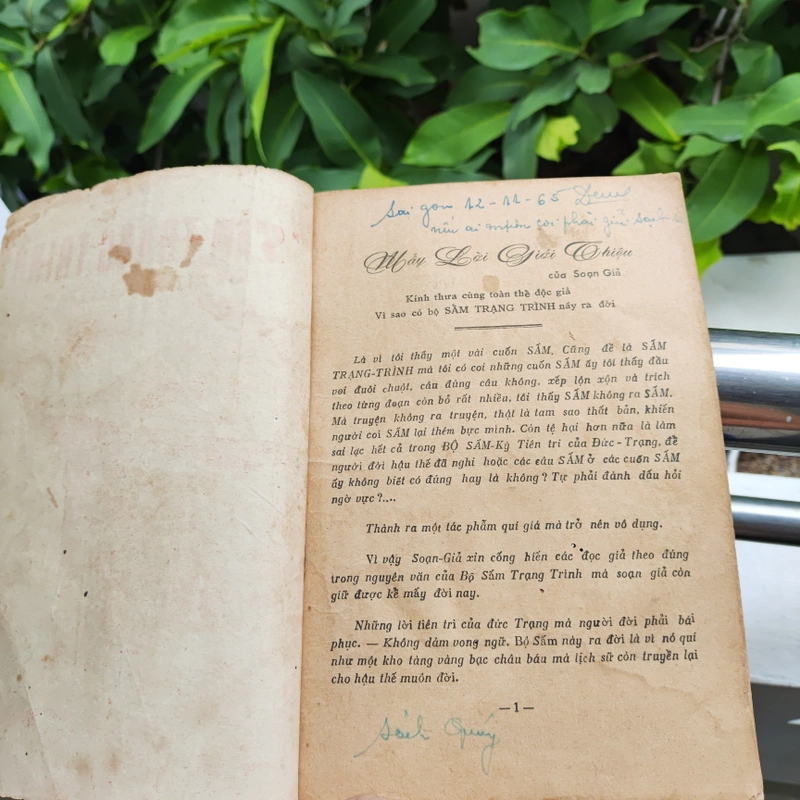 Sai gon 12-11-65
nếu ai mượn coi phải giữ sạch
Mấy Lời Giới Thiệu
của Soạn Giả
Kính thưa cùng toàn thể độc giả
Vì sao có bộ SẤM TRẠNG TRÌNH nầy ra đời
Là vì tôi thấy một vài cuốn SẤM, Cũng đề là SẤM
TRẠNG-TRÌNH mà tôi có coi những cuốn SẤM ấy tôi thấy đầu
voi đuôi chuột, câu đúng câu không, xếp lộn xộn và trích
theo từng đoạn còn bỏ rất nhiều, tôi thấy SẤM không ra SẤM.
Mà truyện không ra truyện, thật là tam sao thất bản, khiến
người coi SẤM lại thêm bực mình. Còn tệ hại hơn nữa là làm
sai lạc hết cả trong BỘ SẤM-Ký Tiên tri của Đức-Trạng, đề
người đời hậu thế đã nghi hoặc các câu SẤM ở các cuốn SẤM
ấy không biết có đúng hay là không? Tự phải đánh dấu hỏi
ngờ vực?....
Thành ra một tác phẩm quí giá mà trở nên vô dụng.
Vì vậy Soạn-Giả xin cống hiến các đọc giả theo đúng
trong nguyên văn của Bộ Sấm Trạng Trình mà soạn giả còn
giữ được kể mấy đời nay.
Những lời tiên tri của đức Trạng mà người đời phải bái
phục. — Không dám vong ngữ. Bộ Sấm này ra đời là vì nó quí
như một kho tàng vàng bạc châu báu mà lịch sử còn truyền lại
cho hậu thế muôn đời.
—1—
Sách Quý